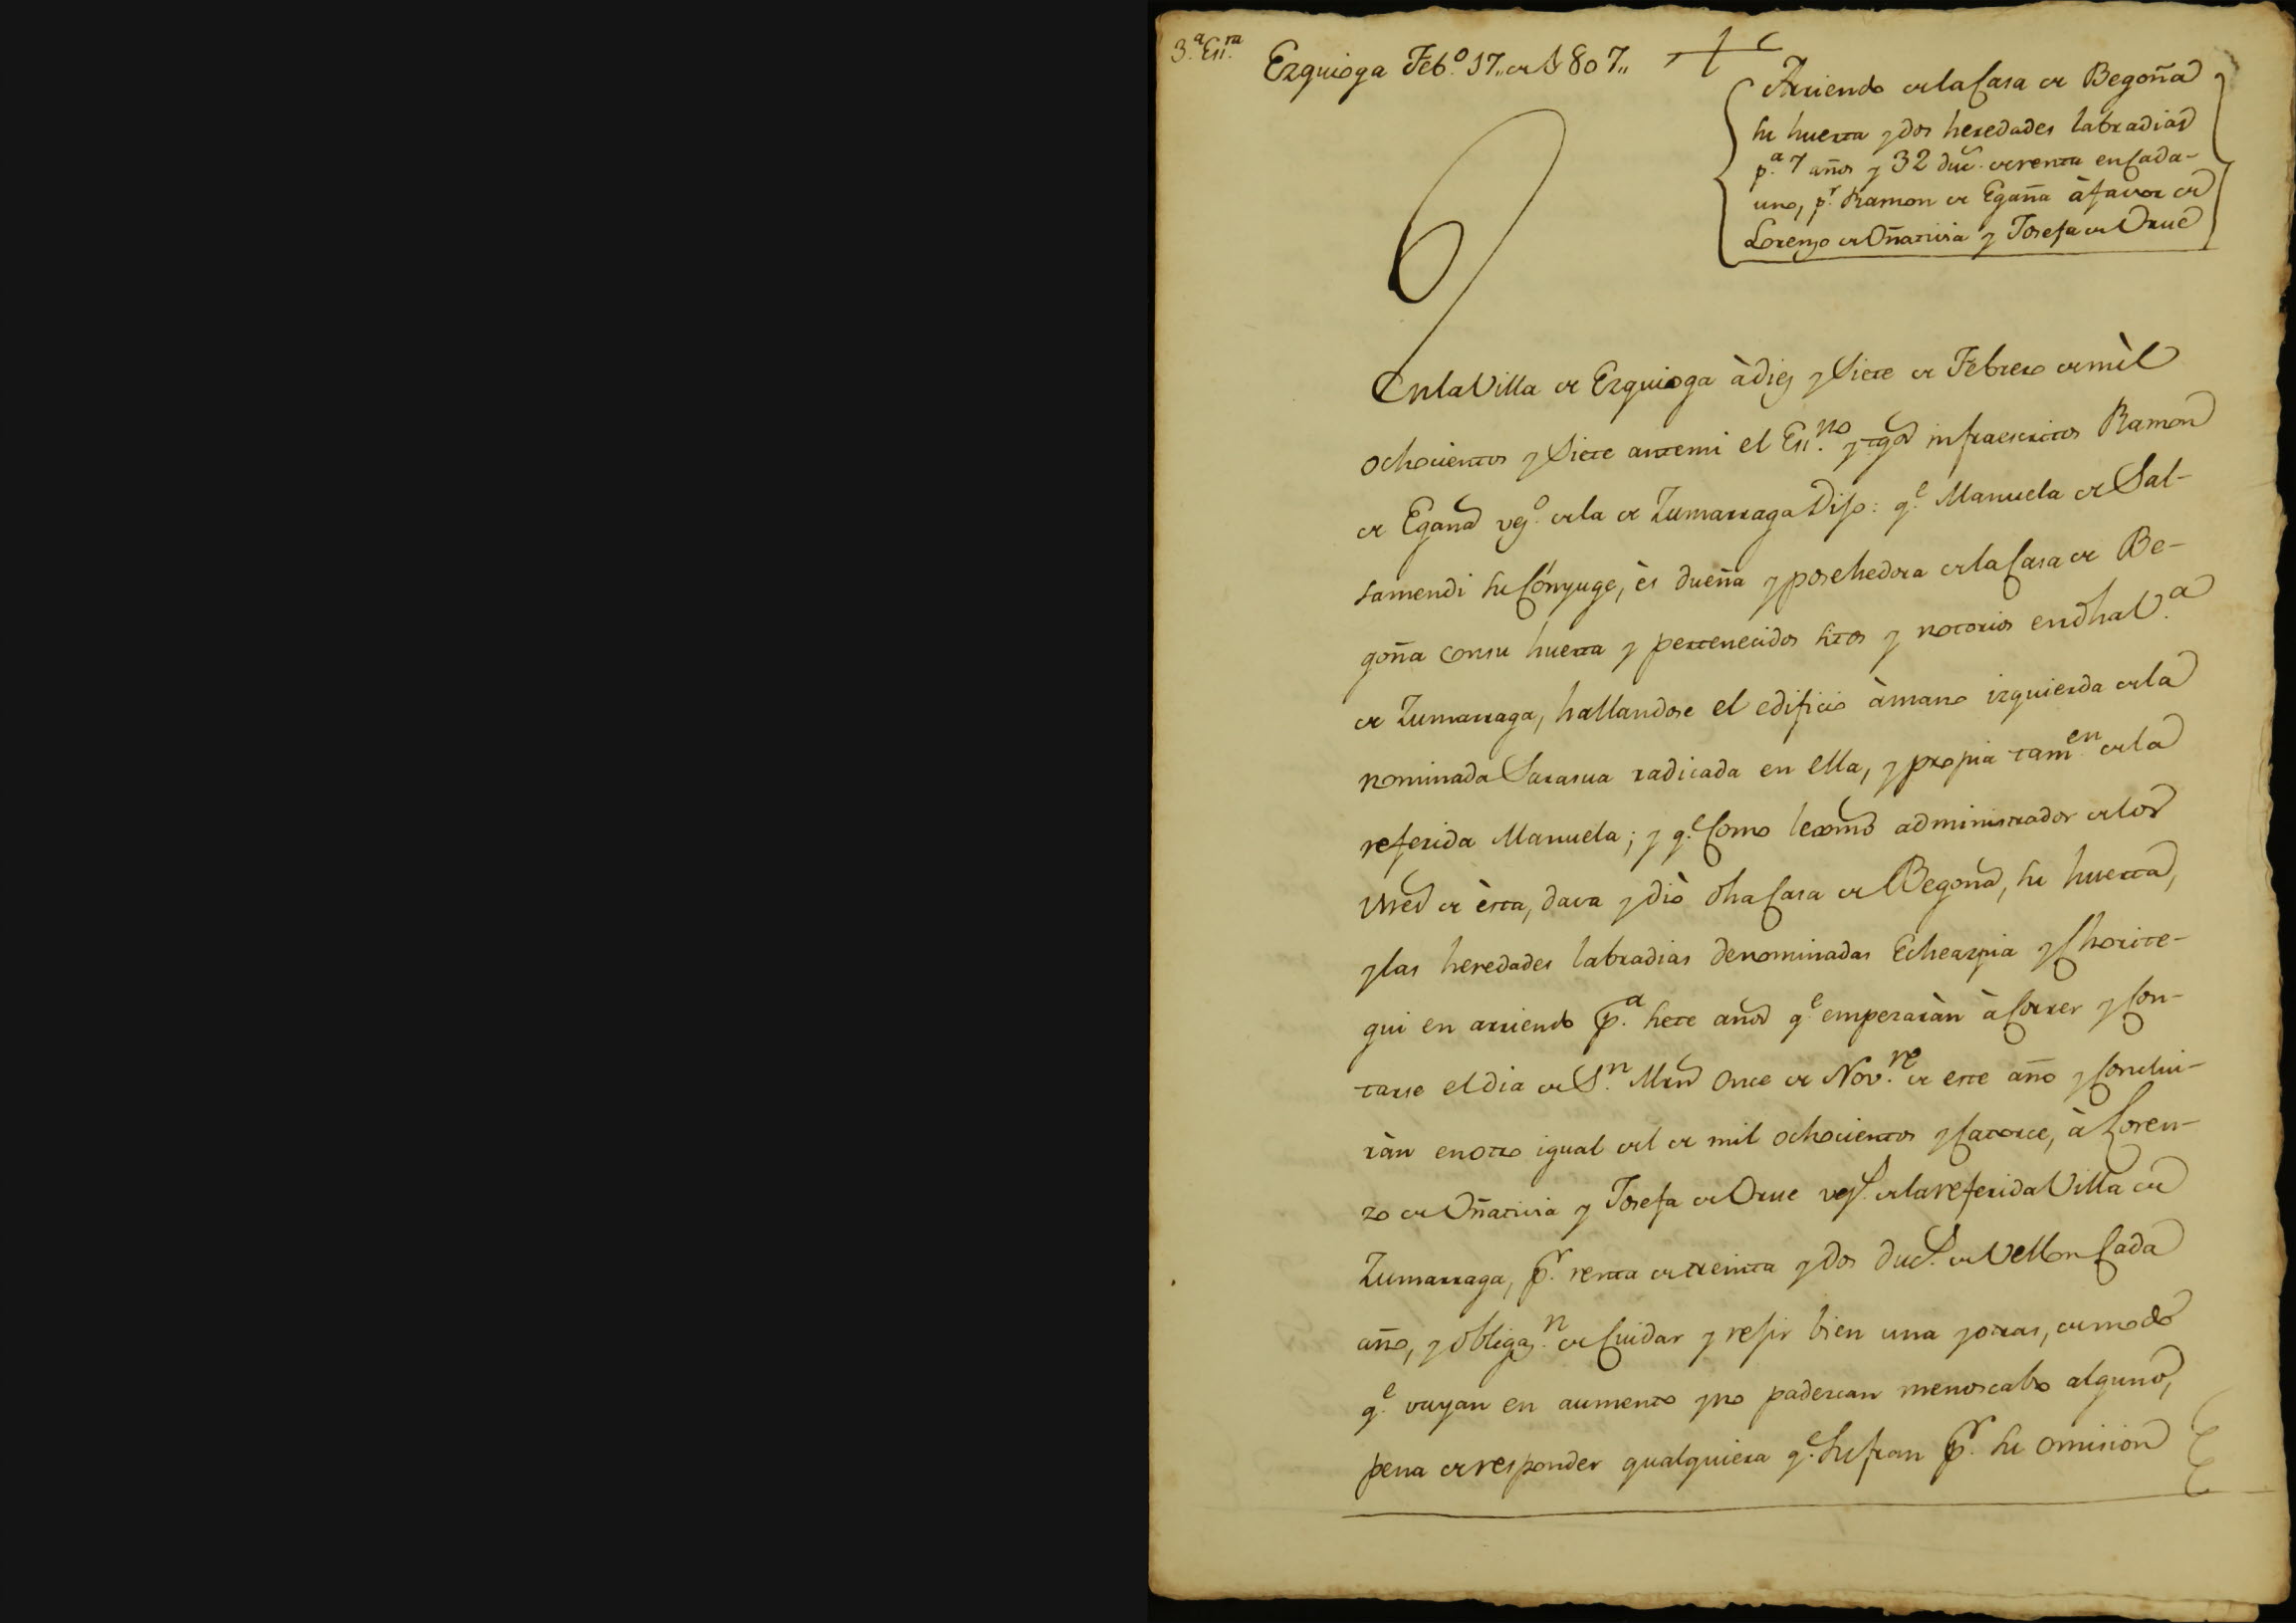 3.ª Esc.ra
Ezquioga Feb.o 17,, de 1807,,
Arriendo de la Casa de Begoña
su huerta y dos heredades labradias
p.a 7 años y 32 duc.s de renta en Cada-
uno, p.r Ramon de Egaña à favor de
Lorenzo de Oñativia y Josefa de Orue
En la Villa de Ezquioga à diez y Siete de Febrero de mil
ochocientos y Siete ante mi el Es.no y tgos infraescritos Ramon
de Egaña vez.o de la de Zumarraga Dijo: q.e Manuela de Sal-
samendi su Cónyuge, ès dueña y posehedora de la Casa de Be-
goña con su huerta y pertenecidos sitos y notorios en dha V.a
de Zumarraga, hallandose el edificio à mano izquierda de la
nominada Sarasua radicada en ella, y propia tam.en de la
referida Manuela; y q.e Como lexmo administrador de los
vnes de èsta, dava y diò dha Casa de Begoña, su huerta,
y las heredades labradias denominadas Echeazpia y Chorite-
gui en arriendo p.a siete años q.e empezaràn à Correr y Con-
tarse el dia de S.n Mrn Once de Nov.re de este año y Conclui-
ràn en otro igual del de mil ochocientos y Catorce, à Loren-
zo de Oñativia y Josefa de Orue vez.s de la referida Villa de
Zumarraga, p.r renta de treinta y dos duc.s de Vellon Cada
año, y obligaz.n de Cuidar y rejir bien una y otras, de modo
q.e vayan en aumento y no padezcan menoscabo alguno,
pena de responder qualquiera q.e sufran p.r su omision